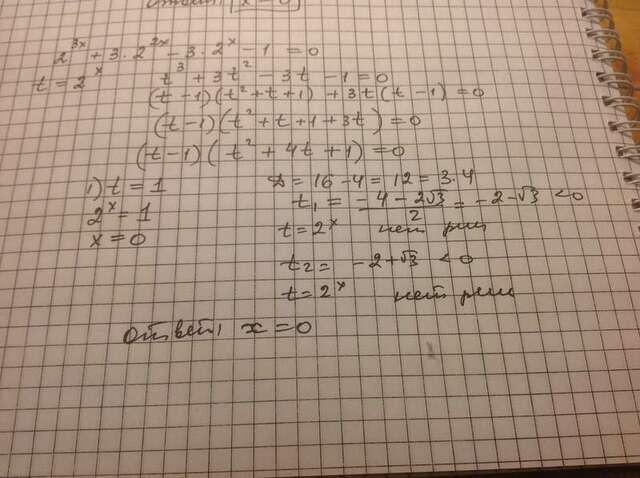 Ответ: x = 0
2^{3x} + 3·2^{2x} - 3·2^x - 1 = 0
t = 2^x t^3 + 3t^2 - 3t - 1 = 0
(t-1)(t^2+t+1) + 3t(t-1) = 0
(t-1)(t^2+t+1+3t) = 0
(t-1)(t^2+4t+1) = 0
1) t = 1 D = 16-4 = 12 = 3·4
2^x = 1 t_1 = \frac{-4-2√3}{2} = -2-√3 < 0
x = 0 t = 2^x нет реш
t_2 = -2+√3 < 0
t = 2^x нет реш
Ответ: x = 0